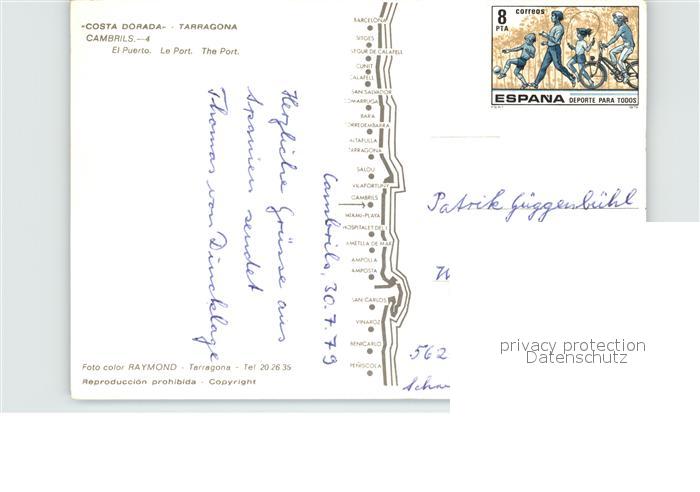 «COSTA DORADA» - TARRAGONA
CAMBRILS.—4
El Puerto. Le Port. The Port.
Cambrils, 30.7.79
Herzliche Grüsse aus
Spanien sendet
Thomas von Dincklage
Foto color RAYMOND - Tarragona - Tel 20 26 35
Reproducción prohibida - Copyright
BARCELONA
SITGES
SEGUR DE CALAFELL
CUNIT
CALAFELL
SAN SALVADOR
COMARRUGA
BARA
TORREDEMBARRA
ALTAFULLA
TARRAGONA
SALOU
VILAFORTUNY
CAMBRILS
MIAMI-PLAYA
HOSPITALET DEL I.
AMETLLA DE MAR
AMPOLLA
AMPOSTA
SAN CARLOS
VINAROZ
BENICARLO
PEÑISCOLA
8 correos
PTA
ESPAÑA DEPORTE PARA TODOS
Patrik Güggenbühl
562
Schw
privacy protection
Datenschutz